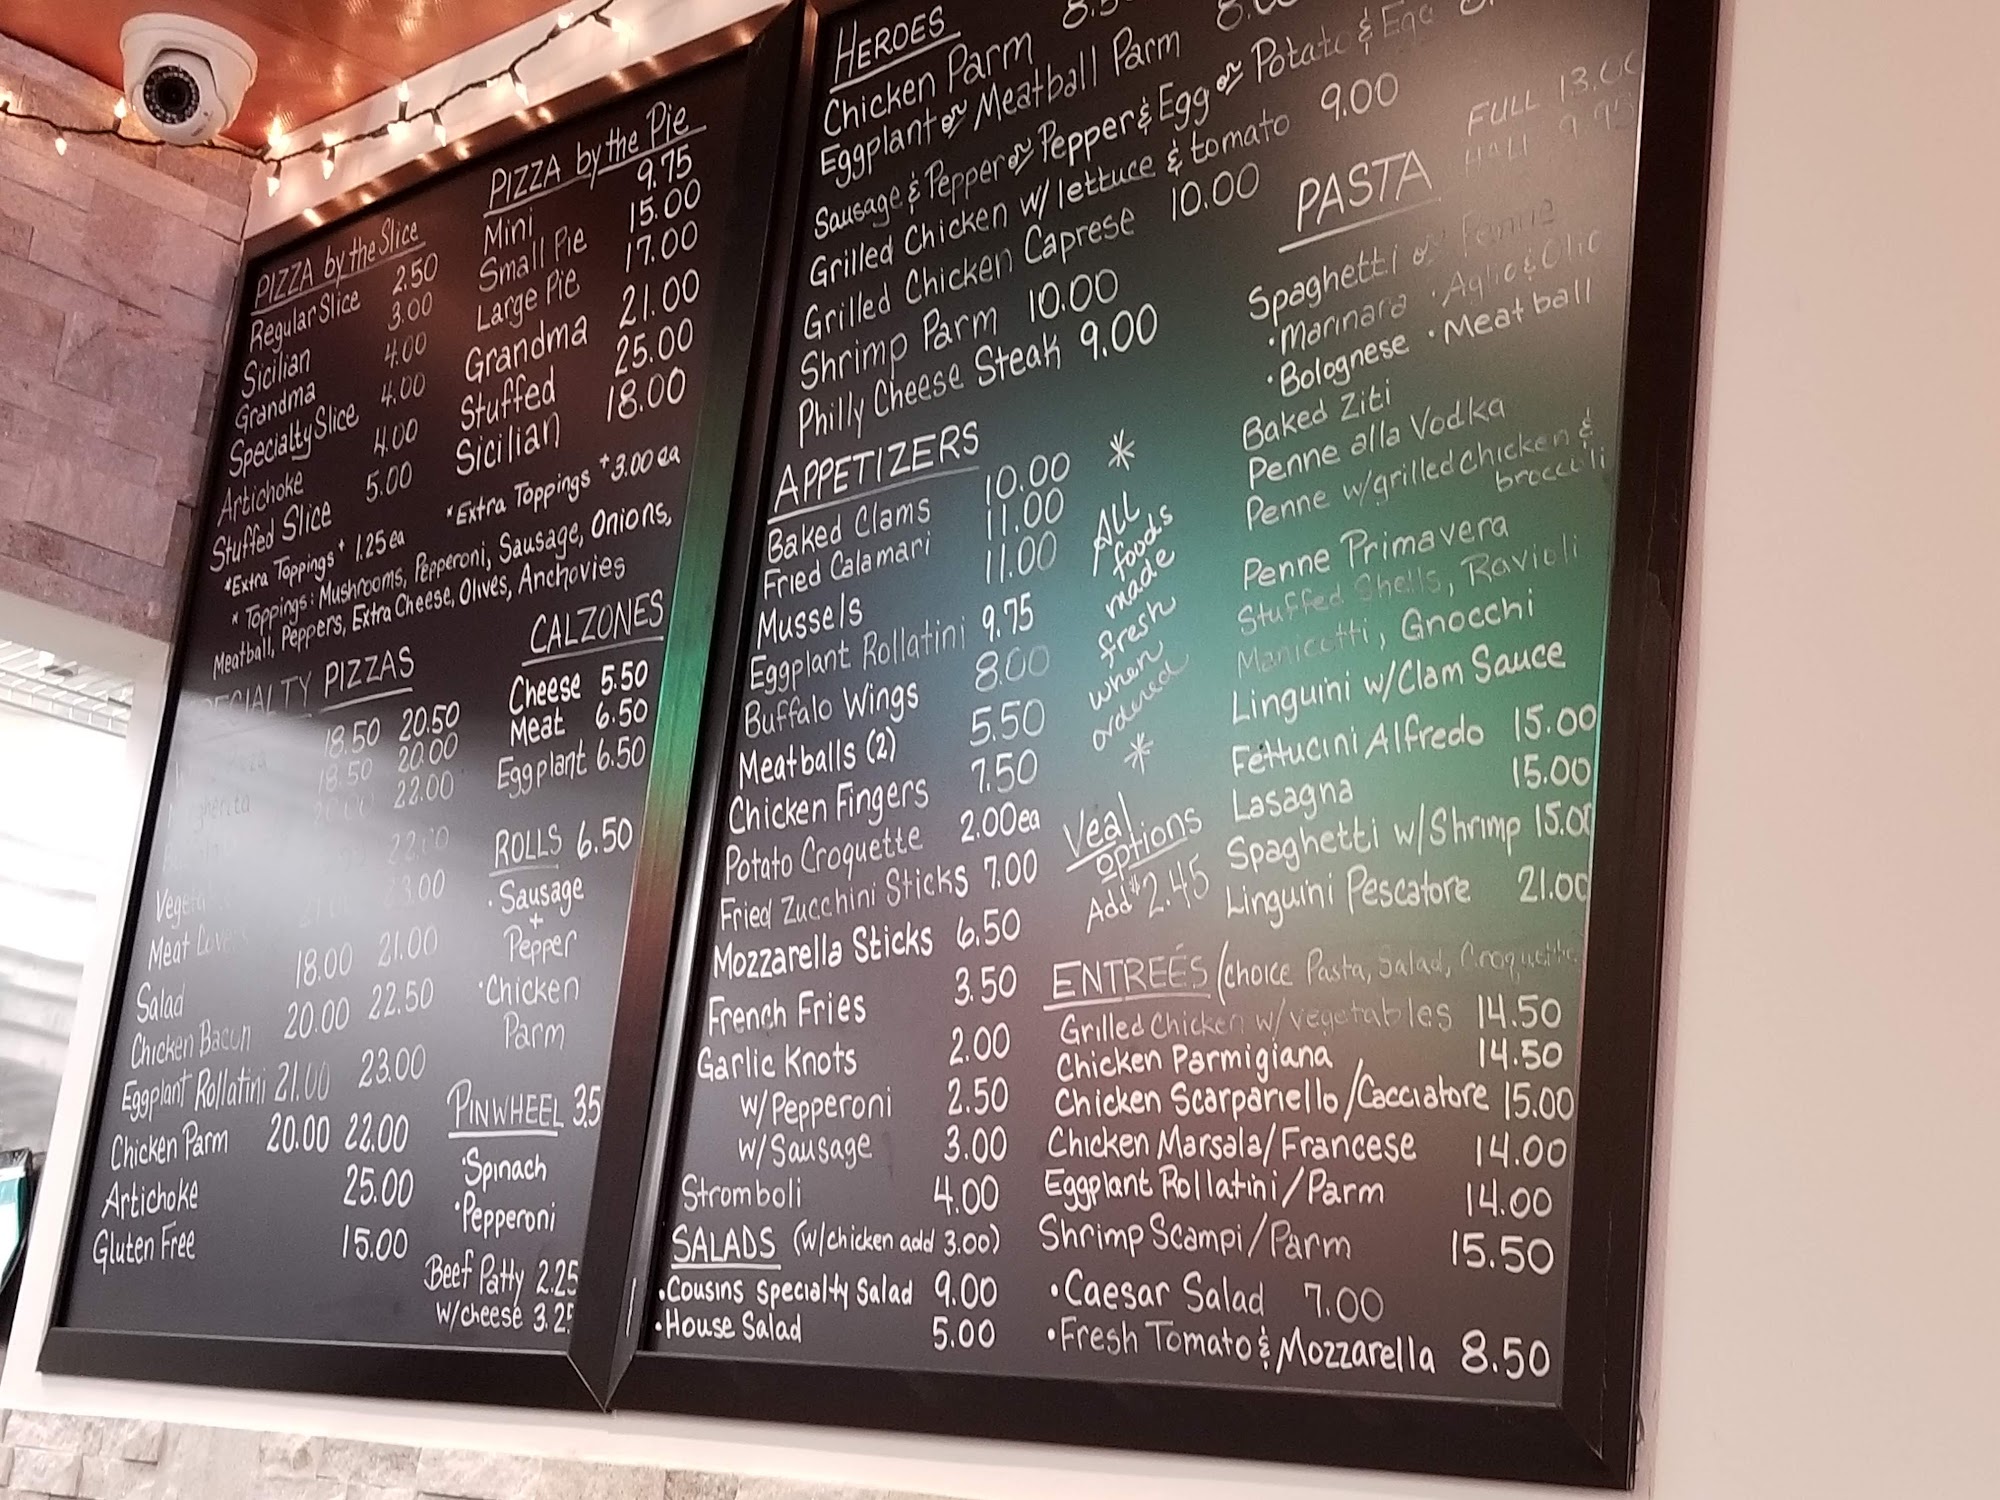 PIZZA by the Slice
Regular Slice 2.50
Sicilian 3.00
Grandma 4.00
Specialty Slice 4.00
Artichoke 4.00
Stuffed Slice 5.00
*Extra Toppings + 1.25 ea
PIZZA by the Pie
Mini 9.75
Small Pie 15.00
Large Pie 17.00
Grandma 21.00
Stuffed 25.00
Sicilian 18.00
*Extra Toppings +3.00 ea
* Toppings: Mushrooms, Pepperoni, Sausage, Onions,
Meatball, Peppers, Extra Cheese, Olives, Anchovies
PIZZAS
18.50 20.50
18.50 20.00
22.00
Meat
Salad 18.00 21.00
Chicken Bacon 20.00 22.50
Eggplant Rollatini 21.00 23.00
Chicken Parm 20.00 22.00
Artichoke 25.00
Gluten Free 15.00
CALZONES
Cheese 5.50
Meat 6.50
Eggplant 6.50
ROLLS 6.50
• Sausage
+
Pepper
• Chicken
Parm
PINWHEEL 3.5
• Spinach
• Pepperoni
Beef Patty 2.25
w/cheese 3.25
HEROES
Chicken Parm
Eggplant or Meatball Parm
Sausage & Pepper or Pepper & Egg or Potato & Egg
Grilled Chicken w/ lettuce & tomato 9.00
Grilled Chicken Caprese 10.00
Shrimp Parm 10.00
Philly Cheese Steak 9.00
APPETIZERS
Baked Clams 10.00
Fried Calamari 11.00
Mussels 11.00
Eggplant Rollatini 9.75
Buffalo Wings 8.00
Meatballs (2) 5.50
Chicken Fingers 7.50
Potato Croquette 2.00ea
Fried Zucchini Sticks 7.00
Mozzarella Sticks 6.50
French Fries 3.50
Garlic Knots 2.00
w/Pepperoni 2.50
w/Sausage 3.00
Stromboli 4.00
SALADS (w/chicken add 3.00)
• Cousins specialty Salad 9.00
• House Salad 5.00
*
ALL
foods
made
fresh
when
ordered
*
Veal
options
Add $2.45
PASTA
FULL 13.00
HALF 9.95
Spaghetti or Penne
• Marinara • Aglio & Olio
• Bolognese • Meatball
Baked Ziti
Penne alla Vodka
Penne w/grilled chicken &
broccoli
Penne Primavera
Stuffed Shells, Ravioli
Manicotti, Gnocchi
Linguini w/Clam Sauce
Fettucini Alfredo 15.00
Lasagna 15.00
Spaghetti w/Shrimp 15.00
Linguini Pescatore 21.00
ENTREÉS (choice Pasta, Salad, Croquette
Grilled Chicken w/vegetables 14.50
Chicken Parmigiana 14.50
Chicken Scarpariello/Cacciatore 15.00
Chicken Marsala/Francese 14.00
Eggplant Rollatini/Parm 14.00
Shrimp Scampi/Parm 15.50
• Caesar Salad 7.00
• Fresh Tomato & Mozzarella 8.50